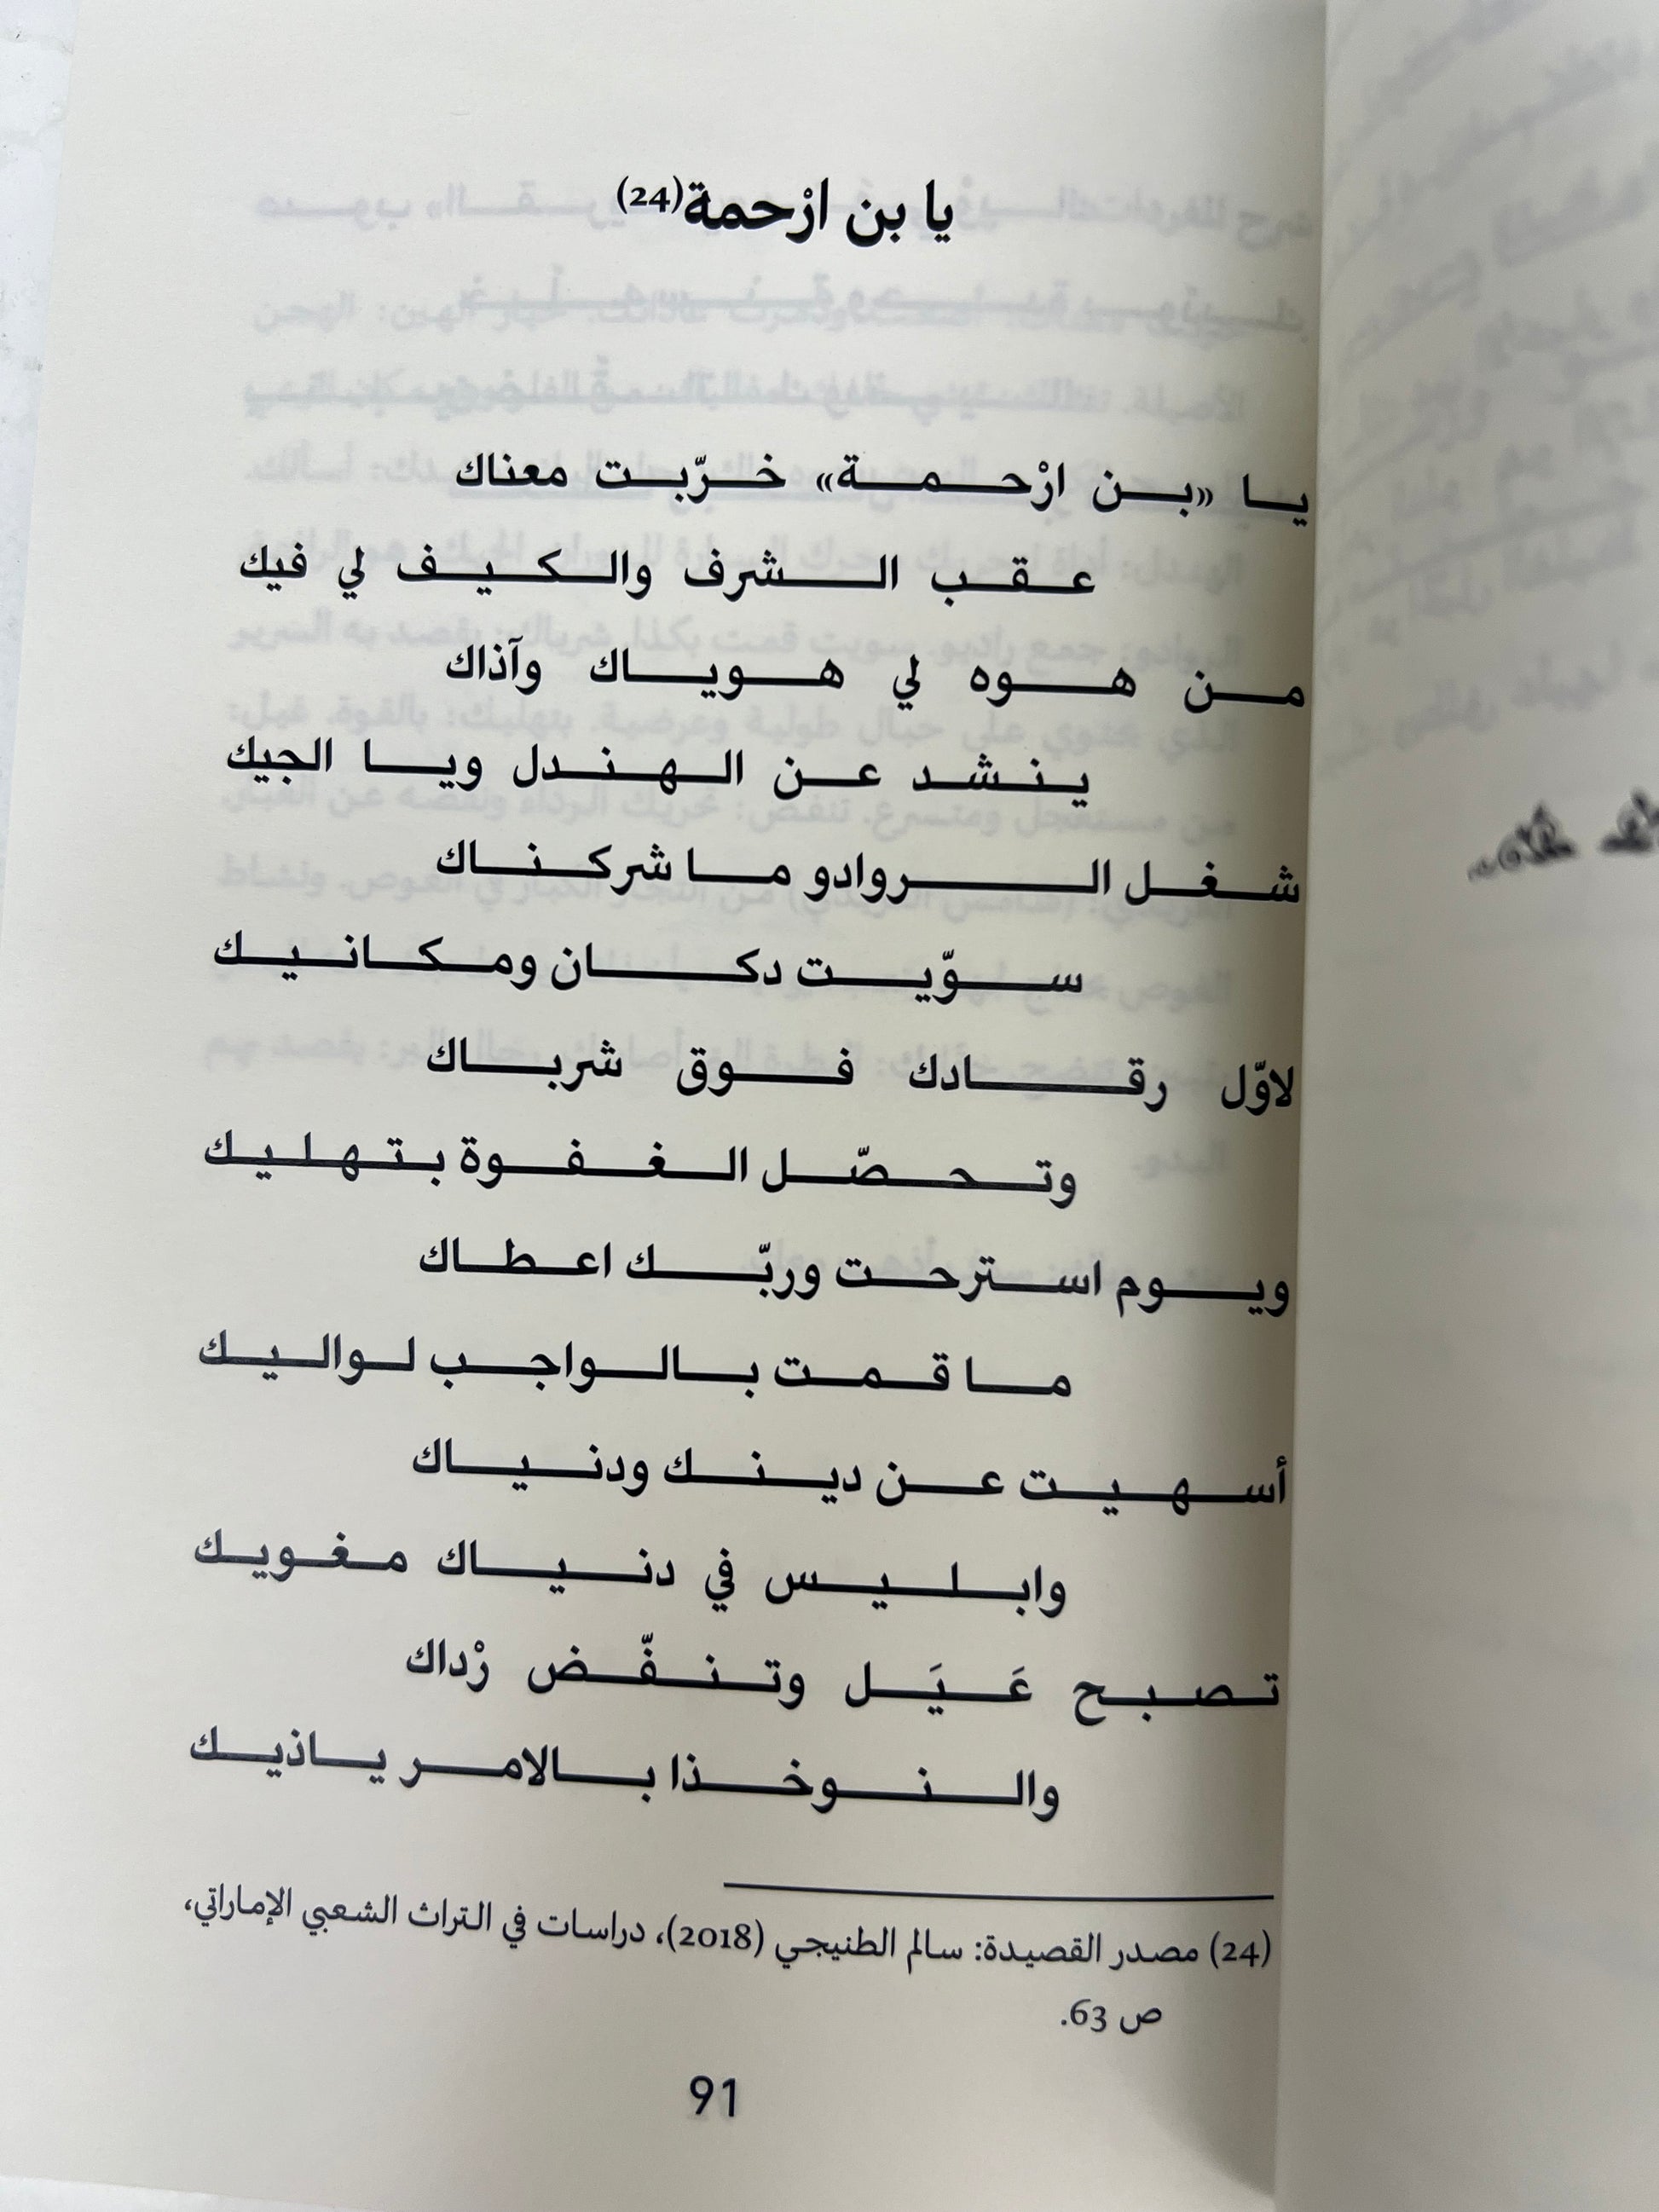 يا بن ارْحمة(24)
يا «بن ارْحمة» خرّبت معناك
عقب الشرف والكيف لي فيك
من هوه لي هوياك وآذاك
ينشد عن الهندل ويا الجيك
شغل الروادو ما شركناك
سوّيت دكان ومكانيك
لاوّل رقادك فوق شرباك
وتحصّل الغفوة بتهليك
ويوم استرحت وربّك اعطاك
ما قمت بالواجب لواليك
أسهيت عن دينك ودنياك
وابليس في دنياك مغويك
تصبح عَيَل وتنفّض رْداك
والنوخذا بالامر ياذيك
(24) مصدر القصيدة: سالم الطنيجي (2018)، دراسات في التراث الشعبي الإماراتي،
ص 63.
91